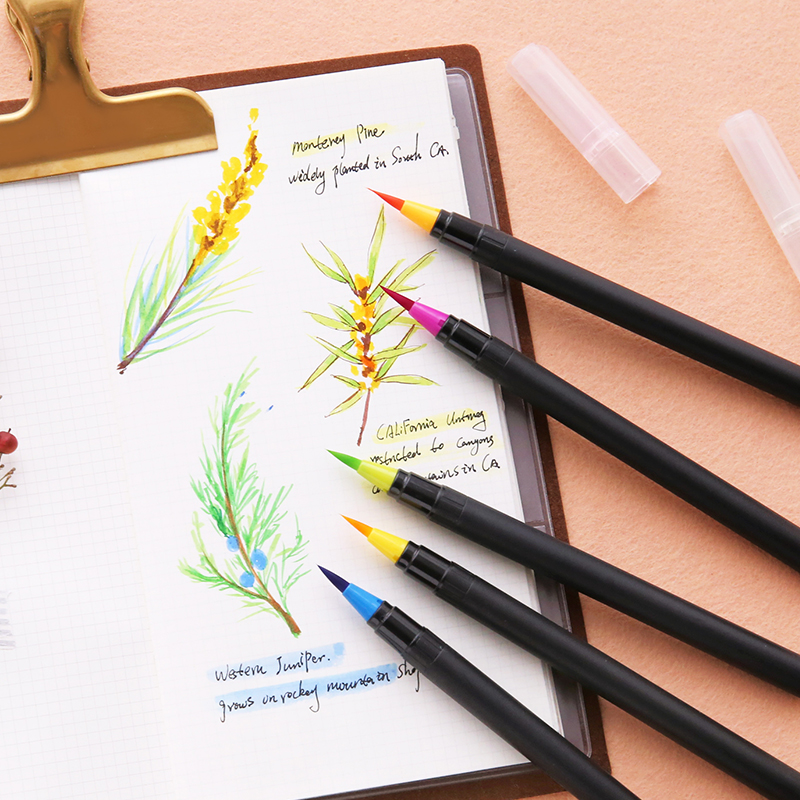 Monterey Pine
widely planted in South CA.
CALiFornia Untmeg
restricted to canyons
in CA.
Western Juniper.
grows on rockey mountain